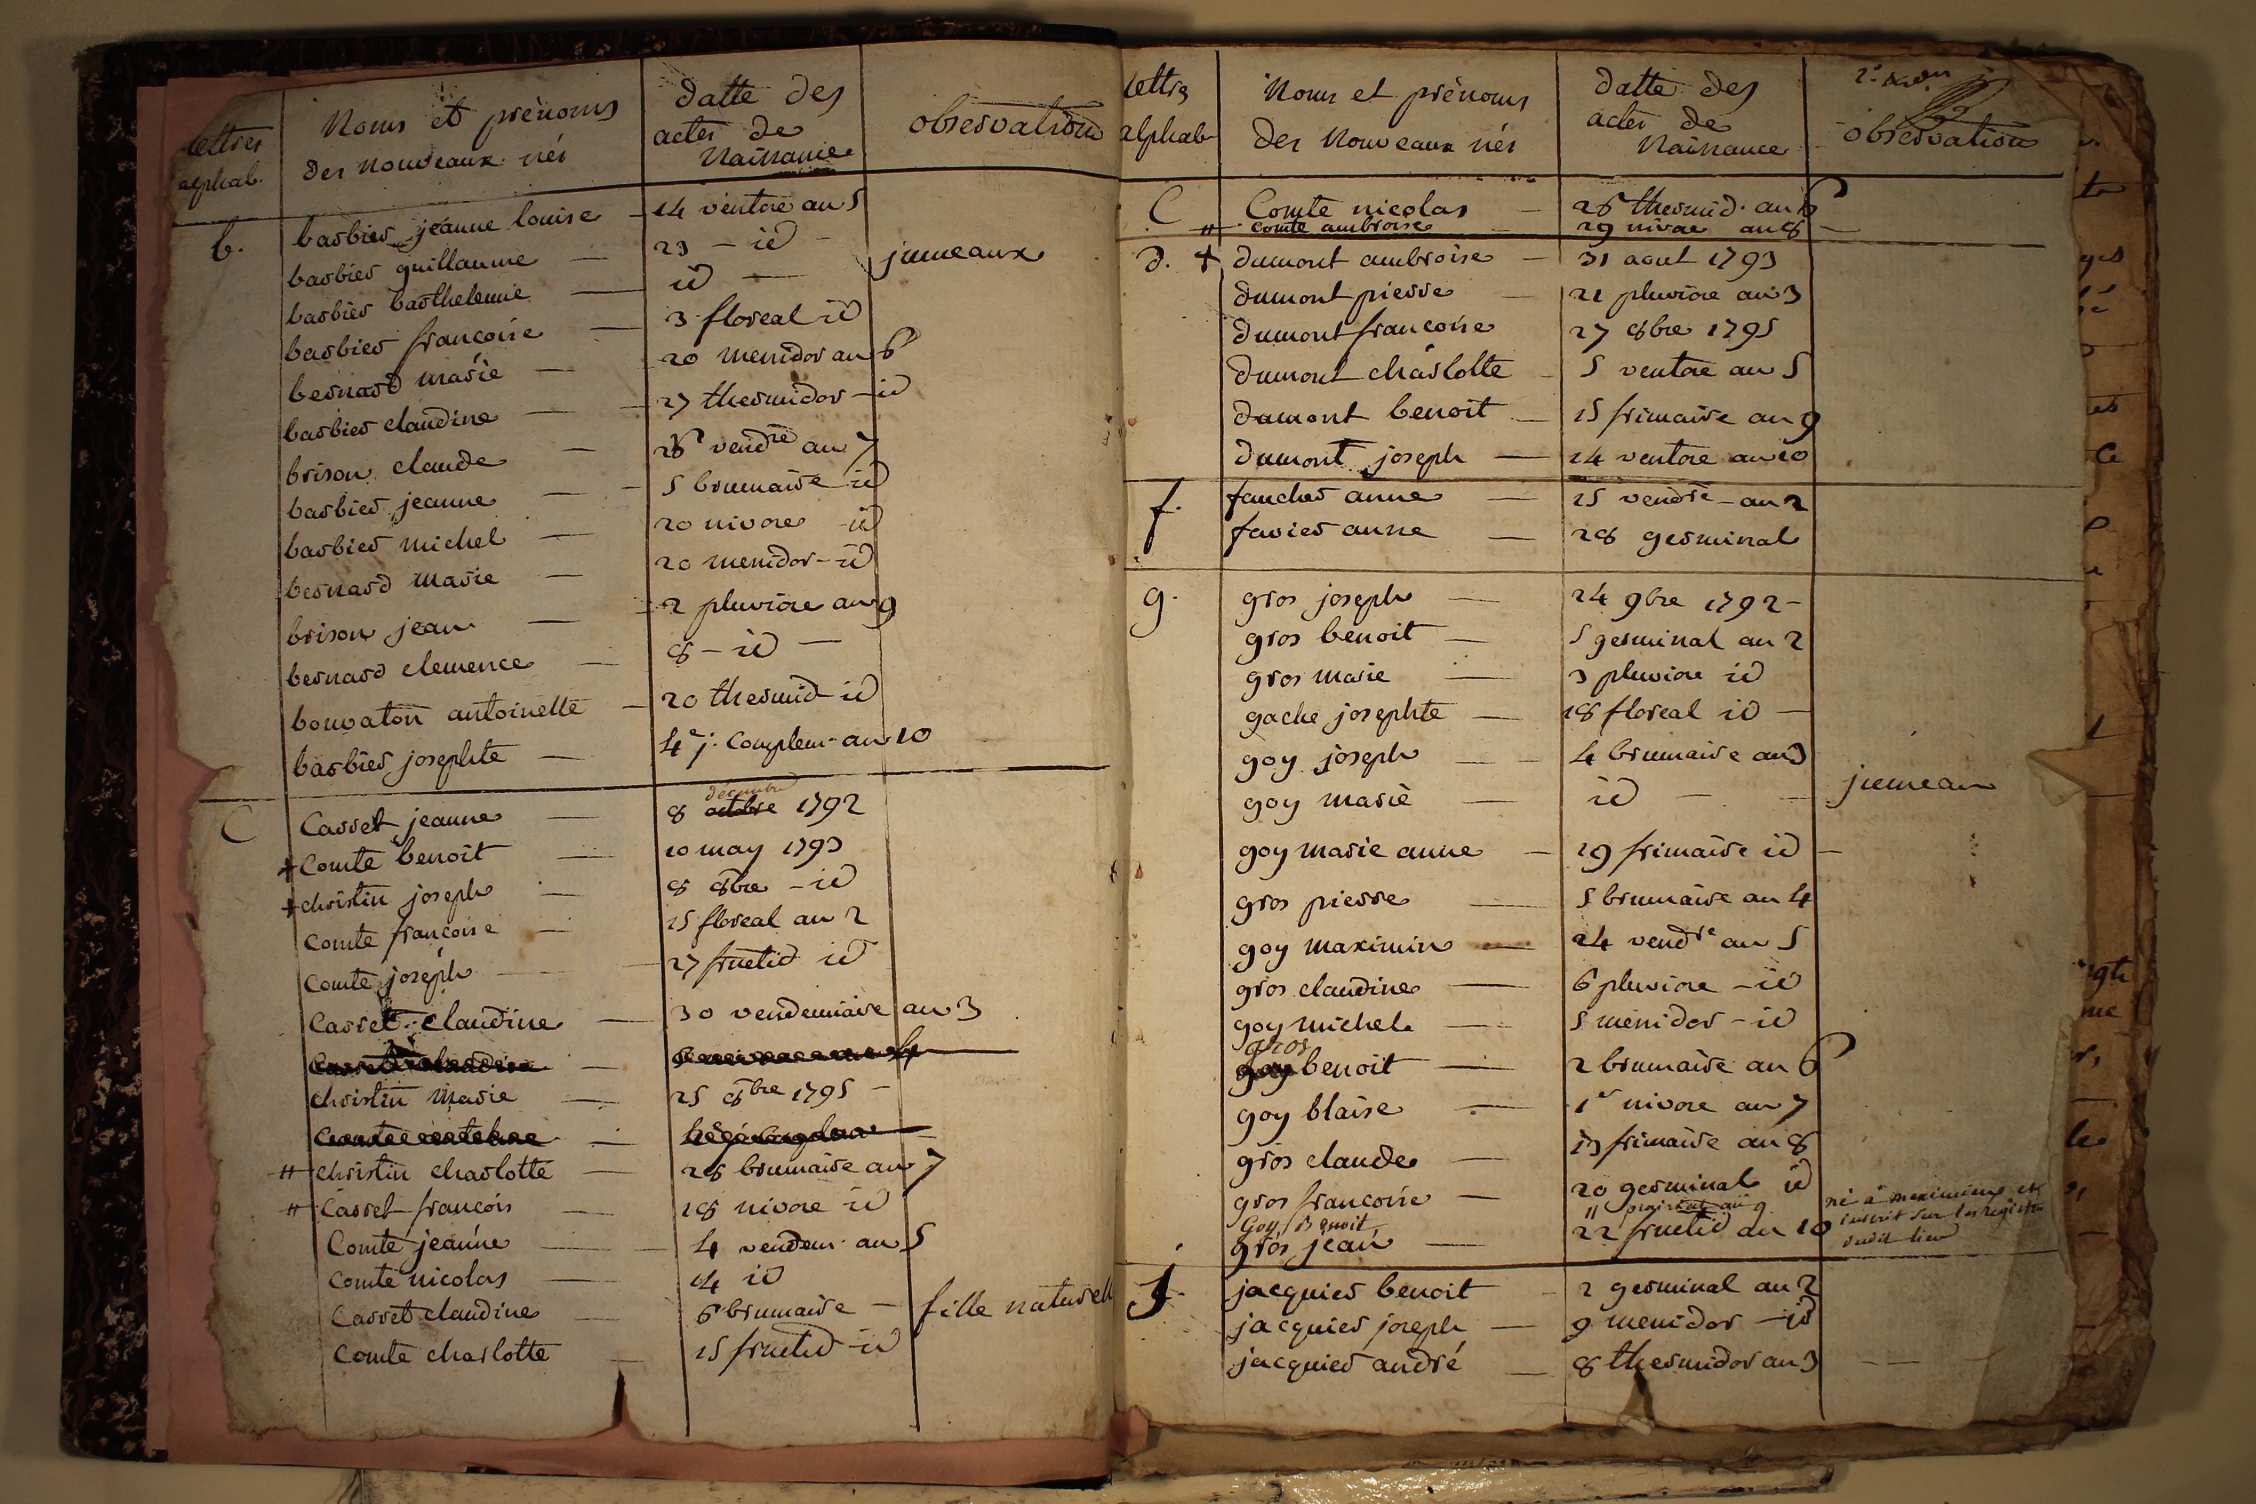 lettres alphab.
Noms et prénoms des nouveaux nés
datte des actes de Naissance
observation
b. barbier jeanne louise - 14 ventose an 5
barbier guillaume - 23 - id -
barbier barthelemie - id - jumeaux
barbier francoise - 3 floreal id
bernard marie - 20 messidor an 6
barbier claudine - 27 thermidor - id
brison claude - 28 vendre an 7
barbier jeanne - 5 brumaire id
barbier michel - 20 nivose id
bernard marie - 20 messidor - id
brison jean - 2 pluviose an 9
bernard clemence - 8 - id -
bouvaton antoinette - 20 thermid id
barbier josephte - 4e j. complem. an 10
C Casset jeanne - 8 octobre décembre 1792
+ Comte benoit - 10 may 1793
+ christin joseph - 8 8bre - id
Comte francoise - 15 floreal an 2
Comte joseph - 27 fructid id
Casset claudine - 30 vendemiaire an 3
christin marie - 25 8bre 1795 -
" christin charlotte - 28 brumaire an 7
" Casset francois - 18 nivose id
Comte jeanne - 4 vendem. an 5
Comte nicolas - 14 id
Casset claudine - 6 brumaire - fille naturell
Comte charlotte - 15 fructid id
lettre alphab
Noms et prénoms des Nouveaux nés
datte des actes de Naissance
observation
C Comte nicolas - 28 thermid. an 6
" comte ambroise - 29 nivose an 8 -
d. + dumont ambroise - 31 aout 1793
dumont pierre - 21 pluviose an 3
dumont francoise - 27 8bre 1795
dumont charlotte - 5 ventose an 5
dumont benoit - 15 frimaire an 9
dumont joseph - 24 ventose an 10
f. faucher anne - 15 vendre - an 2
favier anne - 28 germinal
g. gros joseph - 24 9bre 1792 -
gros benoit - 5 germinal an 2
gros marie - 3 pluviose id
gache josephte - 18 floreal id -
goy joseph - 4 brumaire an 3
goy marie - id - - jumeau
goy marie anne - 19 frimaire id -
gros pierre - 5 brumaire an 4
goy maximin - 24 vendre an 5
gros claudine - 6 pluviose - id
goy michel - 5 messidor - id
gros
goy benoit - 2 brumaire an 6
goy blaise - 1er nivose an 7
gros claude - 13 frimaire an 8
gros francoise - 20 germinal id
Goy Benoit " prairial an 9 né à meximieux et inscrit sur les registre dudit lieu
gros jean - 22 fructid an 10
J. jacquier benoit - 2 germinal an 2
jacquier joseph - 9 messidor - id
jacquier andré - 8 thermidor an 3 - -